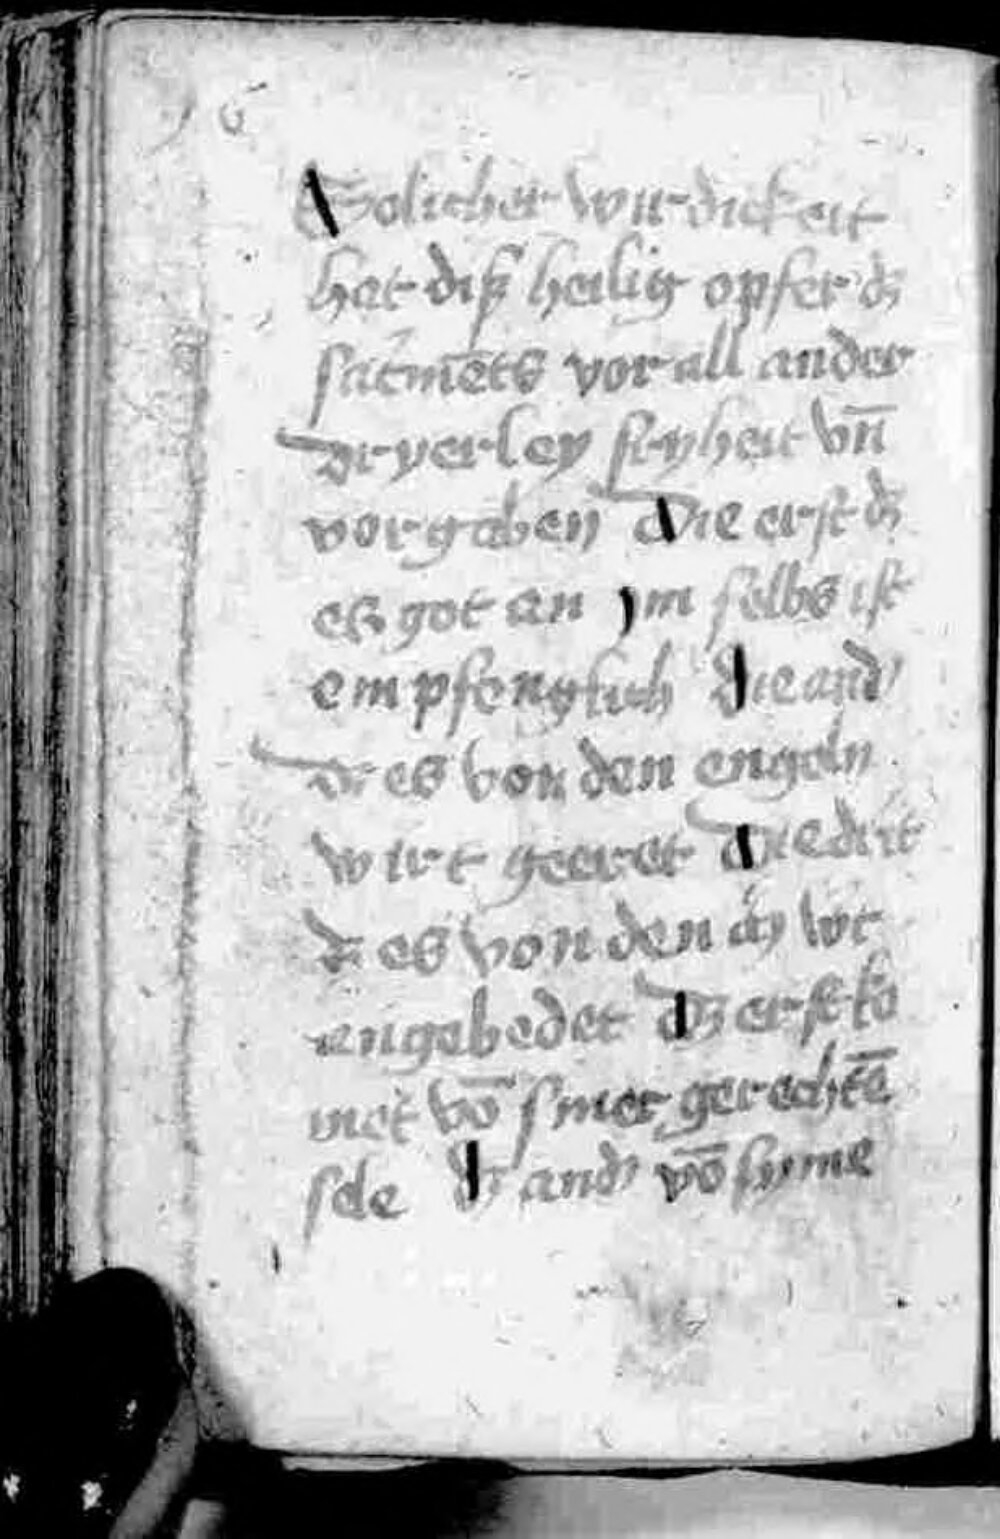 Solicher wirdickeit
het diß heilig opfer dz
sacmēts vor all ander
Dryerley fryheit vn̄
vorgaben Die erst dz
es got an im selbs ist
empfenglich Die and'
Dz es von den engeln
wirt geeret Die drit
Dz es von den wt
angebedet Dz erst ko
met vō siner gerechtē
sele Dz and' vō syme